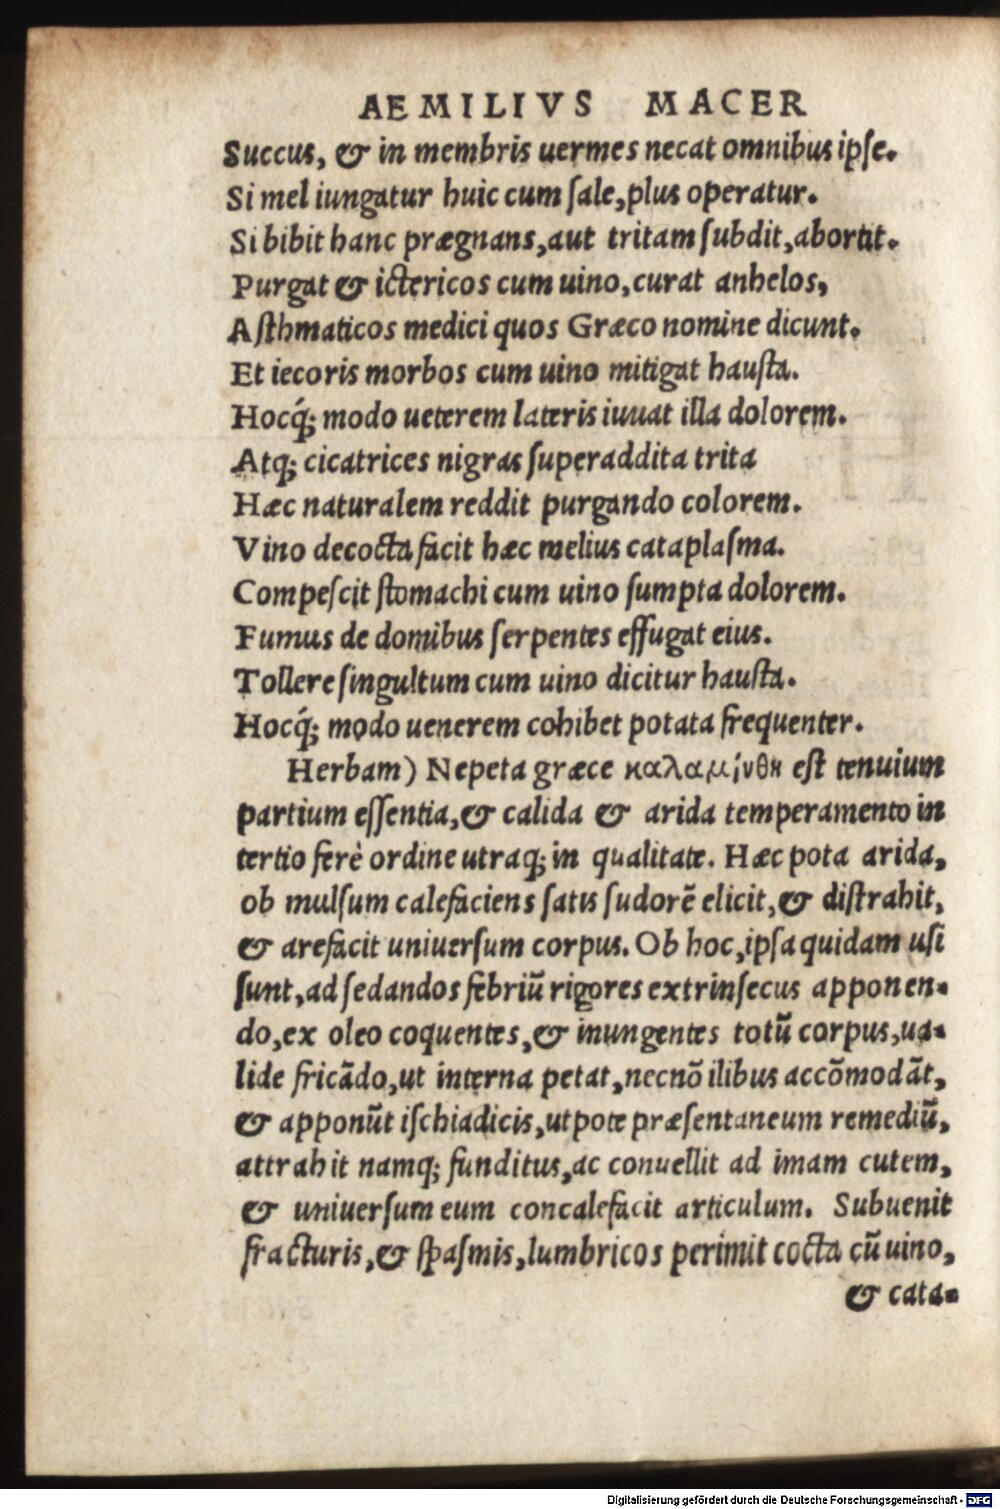 AEMILIVS MACER
Succus, & in membris uermes necat omnibus ipſe.
Si mel iungatur huic cum ſale, plus operatur.
Si bibit hanc prægnans, aut tritam ſubdit, abortit.
Purgat & ictericos cum uino, curat anhelos,
Aſthmaticos medici quos Græco nomine dicunt.
Et iecoris morbos cum uino mitigat hauſta.
Hocq́; modo ueterem lateris iuuat illa dolorem.
Atq; cicatrices nigras ſuperaddita trita
Hæc naturalem reddit purgando colorem.
Vino decocta facit hæc melius cataplaſma.
Compeſcit ſtomachi cum uino ſumpta dolorem.
Fumus de domibus ſerpentes effugat eius.
Tollere ſingultum cum uino dicitur hauſta.
Hocq́; modo uenerem cohibet potata frequenter.
Herbam) Nepeta græce καλαμίνθη eſt tenuium
partium eſſentia, & calida & arida temperamento in
tertio ferè ordine utraq; in qualitate. Hæc pota arida,
ob mulſum calefaciens ſatis ſudorē elicit, & diſtrahit,
& arefacit uniuerſum corpus. Ob hoc, ipſa quidam uſi
ſunt, ad ſedandos febriū rigores extrinſecus apponen-
do, ex oleo coquentes, & inungentes totū corpus, ua-
lide fricādo, ut interna petat, necnō ilibus accōmodāt,
& apponūt iſchiadicis, utpote præſentaneum remediū,
attrahit namq; funditus, ac conuellit ad imam cutem,
& uniuerſum eum concalefacit articulum. Subuenit
fracturis, & ſpaſmis, lumbricos perimit cocta cū uino,
& cata-
Digitalisierung gefördert durch die Deutsche Forschungsgemeinschaft - DFG